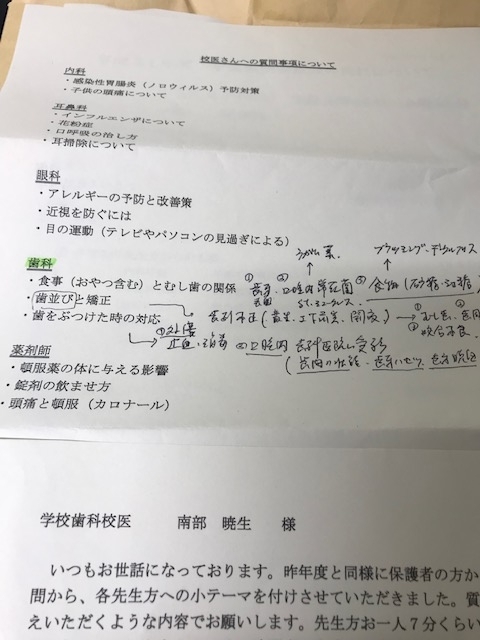 校医さんへの質問事項について
内科
・感染性胃腸炎（ノロウィルス）予防対策
・子供の頭痛について
耳鼻科
・インフルエンザについて
・花粉症
・口呼吸の治し方
・耳掃除について
眼科
・アレルギーの予防と改善策
・近視を防ぐには
・目の運動（テレビやパソコンの見過ぎによる）
フッ素
ブラッシング
歯科
・食事（おやつ含む）とむし歯の関係 ① ② ③ 食物
・歯並びと矯正
・歯をぶつけた時の対応
① 処置
止血
② 口腔内
薬剤師
・頓服薬の体に与える影響
・錠剤の飲ませ方
・頭痛と頓服（カロナール）
学校歯科校医 南部 暁生 様
いつもお世話になっております。昨年度と同様に保護者の方か
問から、各先生方への小テーマを付けさせていただきました。質
えいただくような内容でお願いします。先生方お一人７分くらい